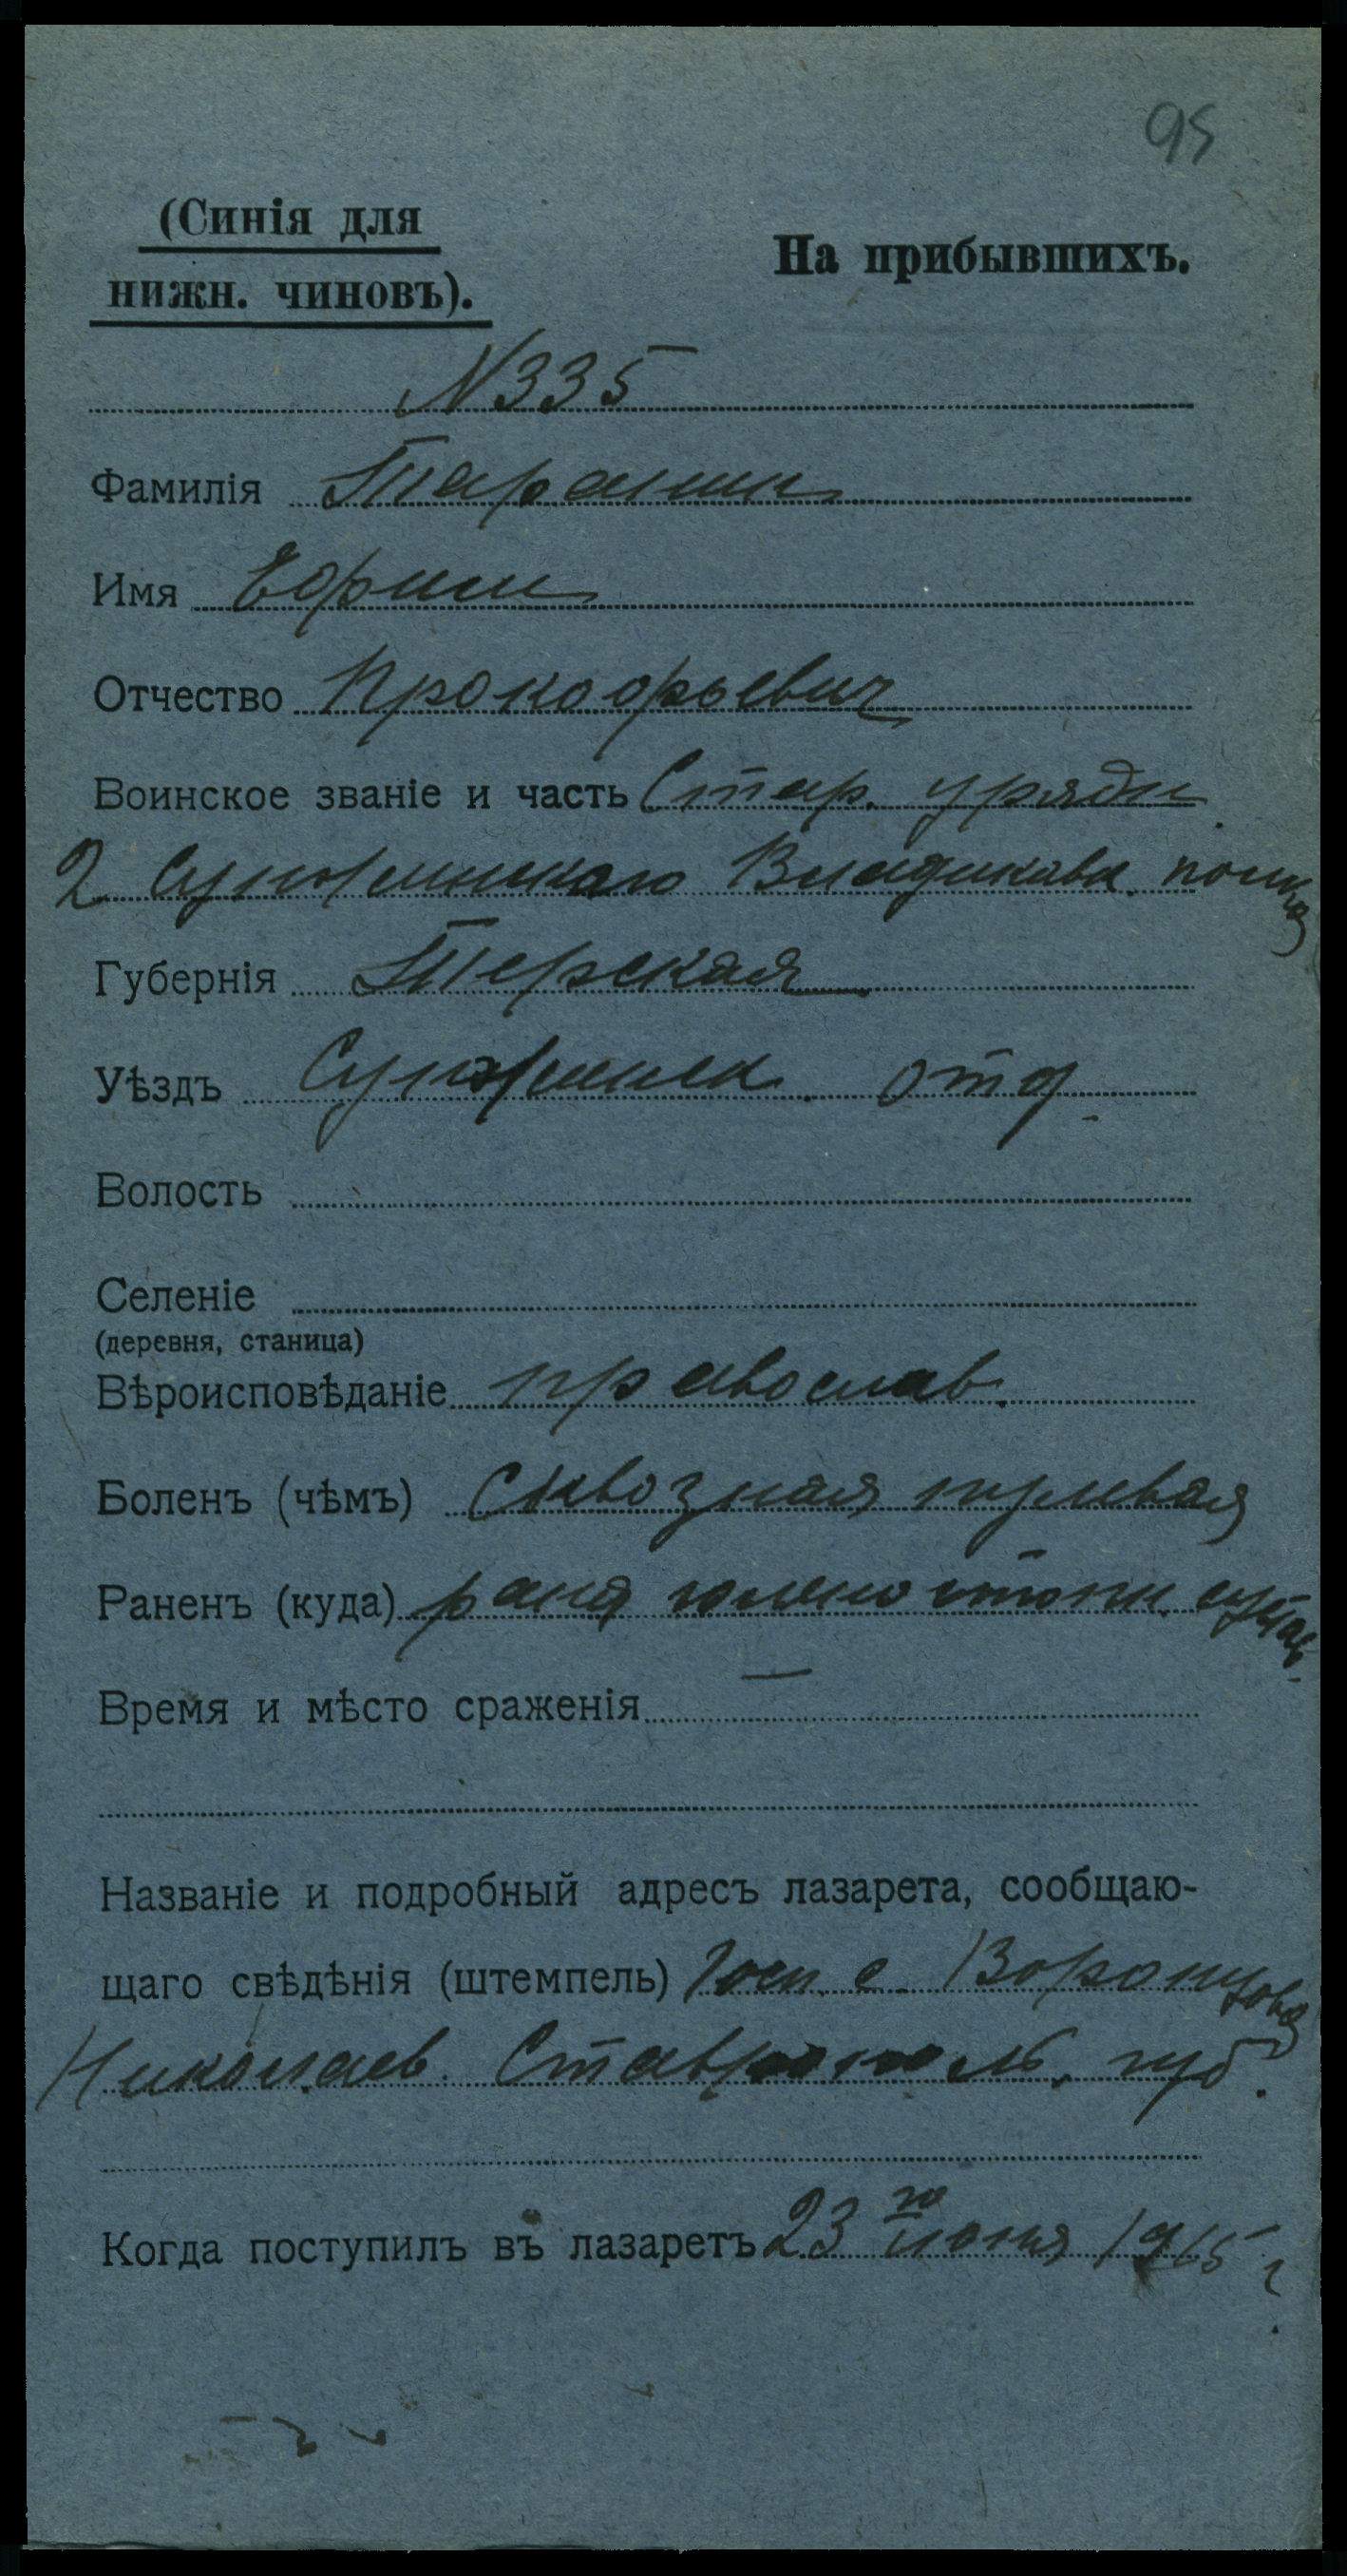 95
(Синія для
нижн. чиновъ).
На прибывшихъ.
N 335
Фамилія Таранин
Имя Ефим
Отчество Прокофьевич
Воинское званіе и часть Стар. урядн.
2 Сунженского Владикавк. полка
Губернія Терская
Уѣздъ Сунженск. отд.
Волость
Селеніе
(деревня, станица)
Вѣроисповѣданіе православ.
Боленъ (чѣмъ) сквозная пулевая
Раненъ (куда) рана голеностопн. сустав.
Время и мѣсто сраженія —
Названіе и подробный адресъ лазарета, сообщаю-
щаго свѣдѣнія (штемпель) Госп. с. Воронцова
Николаев. Ставрополь. губ.
Когда поступилъ въ лазаретъ 23 го июня 1915 г.